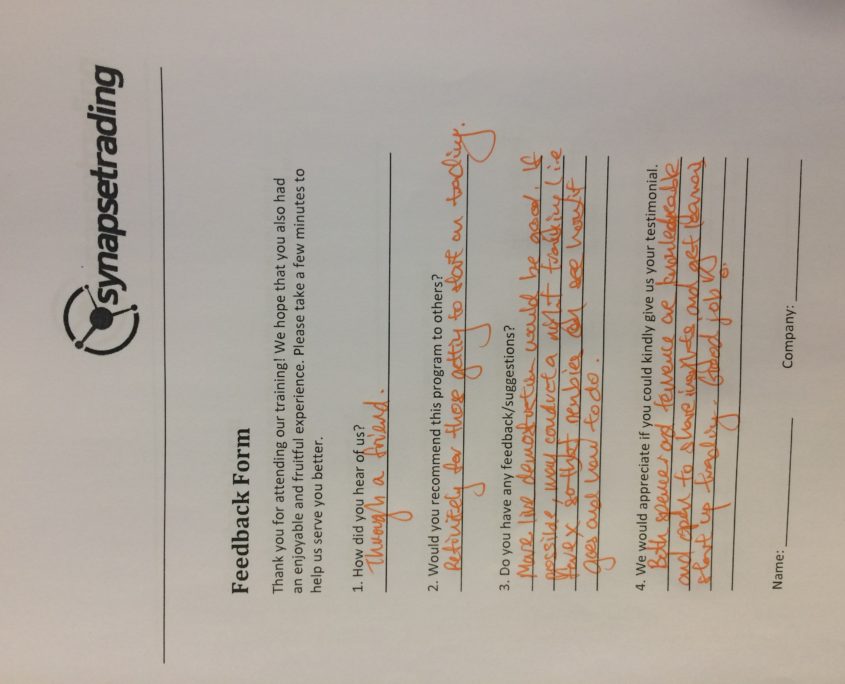 synapsetrading
Feedback Form
Thank you for attending our training! We hope that you also had
an enjoyable and fruitful experience. Please take a few minutes to
help us serve you better.
1. How did you hear of us?
Through a friend.
2. Would you recommend this program to others?
Definitely for those getting to start on trading.
3. Do you have any feedback/suggestions?
More live demonstration would be good. If
possible, may conduct a night trading live
forex so that newbies can see how it
goes and how to do.
4. We would appreciate if you could kindly give us your testimonial.
Both Spencer and are knowledgeable
and open to share insights and get learners
start up trading. Good job
Name:
Company: